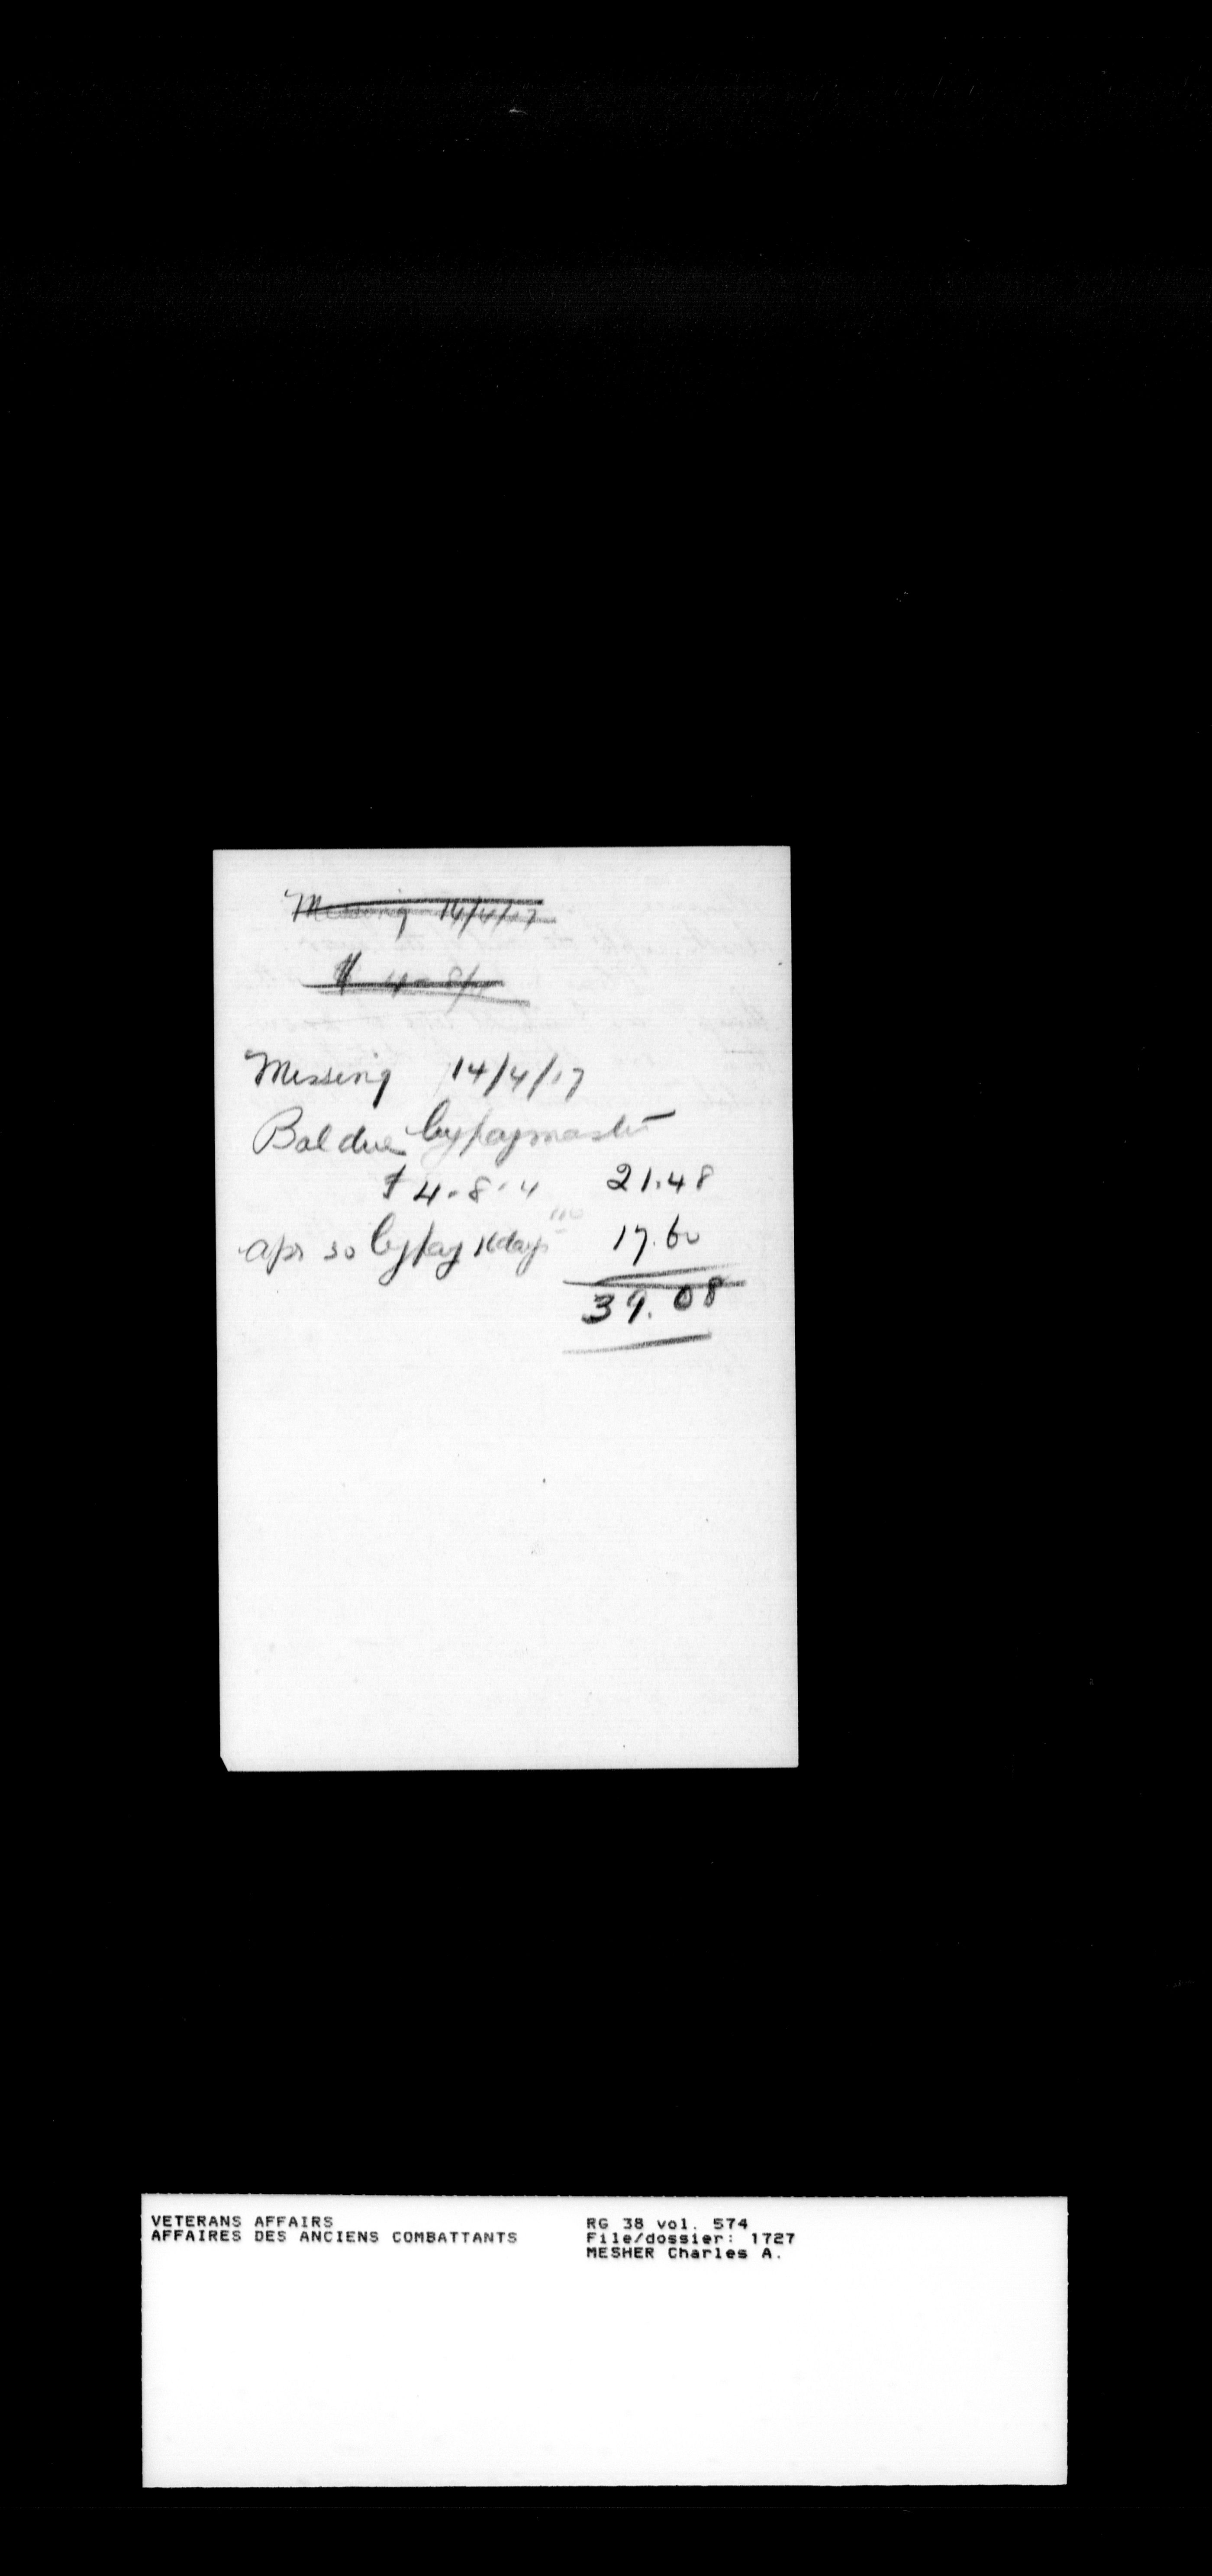 Missing 14/4/17
4-8/4
Missing 14/4/17
Bal due by paymaster
£ 4-8-4 21.48
apr 30 by pay 16 days 110 17.60
39.08
VETERANS AFFAIRS
AFFAIRES DES ANCIENS COMBATTANTS
RG 38 vol. 574
File/dossier: 1727
MESHER Charles A.